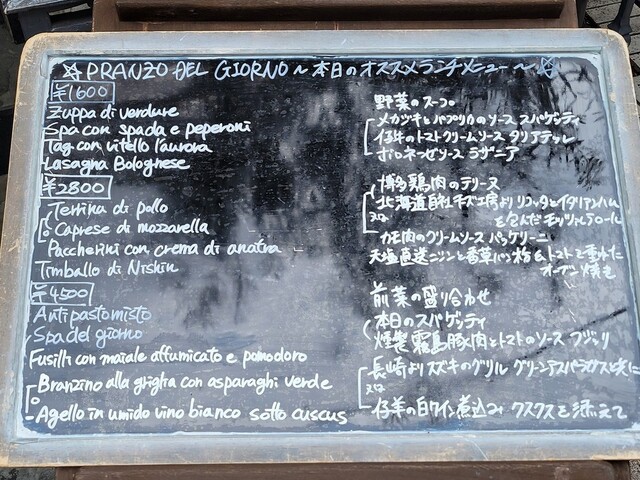 ☆ PRANZO DEL GIORNO ～ 本日のオススメランチメニュー ～ ☆
¥1600
Zuppa di verdure
Spa con spada e peperoni
Tag con vitello l'aurora
Lasagna Bolognese
野菜のスープ
メカジキとパプリカのソース スパゲッティ
仔牛のトマトクリームソース タリアテッレ
ボロネーゼソース ラザニア
¥2800
Terrina di pollo
o
Caprese di mozzarella
Paccherini con crema di anatra
Timballo di Nishin
博多鶏肉のテリーヌ
又は
北海道自社チーズ工房より リコッタとイタリアンハム
を包んだモッツァレラロール
カモ肉のクリームソース パッケリーニ
天塩直送ニシンと香草パン粉＆トマトと重ねた
オーブン焼き
¥4500
Antipasto misto
Spa del giorno
Fusilli con maiale affumicato e pomodoro
Branzino alla griglia con asparaghi verde
o
Agello in umido vino bianco sotto cuscus
前菜の盛り合わせ
本日のスパゲッティ
燻製霧島豚肉とトマトのソース フジッリ
長崎よりスズキのグリル グリーンアスパラガスと共に
又は
仔羊の白ワイン煮込み クスクスを添えて